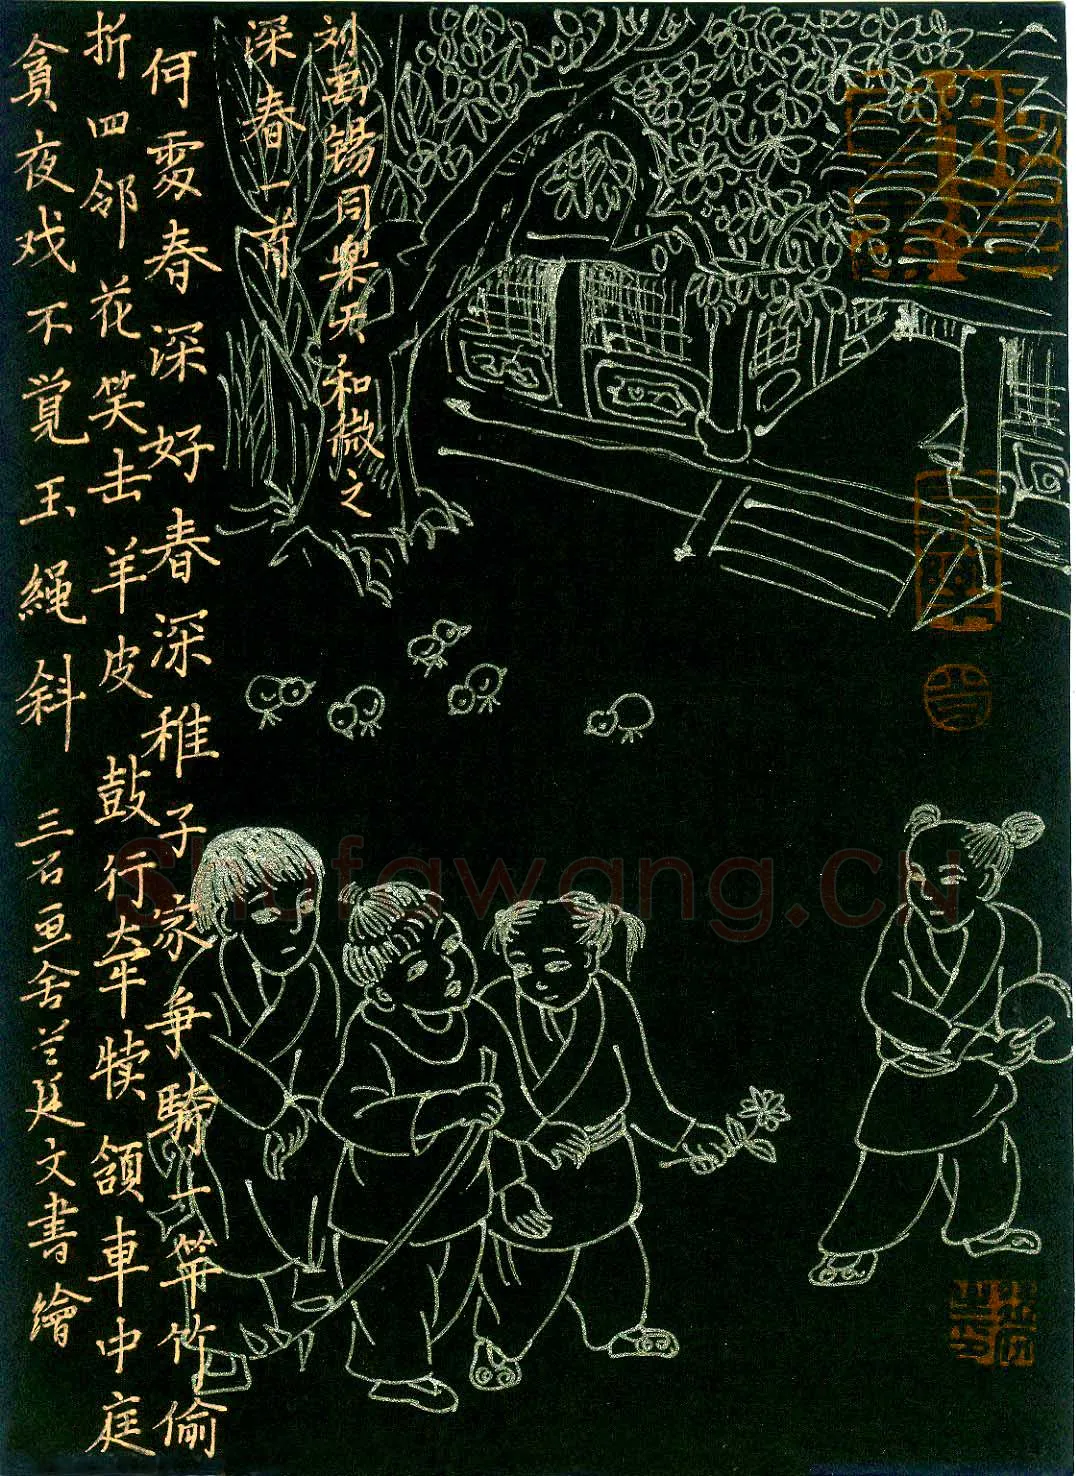 刘禹锡同樂天和微之
深春一首
何䖏春深好春深稚子家争騎一竿竹偷
折四邻花笑击羊皮鼓行牵犊颔車中庭
貪夜戏不覚玉繩斜 三石画舍兰廷文書繪
Shufawang.CN